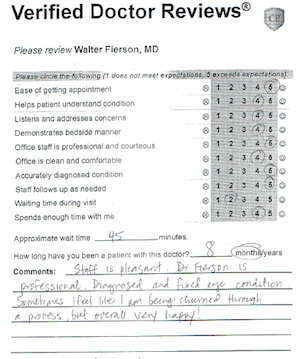 Verified Doctor Reviews®
CE
Please review Walter Fierson, MD
Please circle the following (1 does not meet expectations, 5 exceeds expectations)
Ease of getting appointment 1 2 3 4 5
Helps patient understand condition 1 2 3 4 5
Listens and addresses concerns 1 2 3 4 5
Demonstrates bedside manner 1 2 3 4 5
Office staff is professional and courteous 1 2 3 4 5
Office is clean and comfortable 1 2 3 4 5
Accurately diagnosed condition 1 2 3 4 5
Staff follows up as needed 1 2 3 4 5
Waiting time during visit 1 2 3 4 5
Spends enough time with me 1 2 3 4 5
Approximate wait time 45 minutes.
How long have you been a patient with this doctor? 8 months/years
Comments: Staff is pleasant. Dr Fierson is
professional. Diagnosed and fixed eye condition
Sometimes I feel like I am being churned through
a process, but overall very happy!